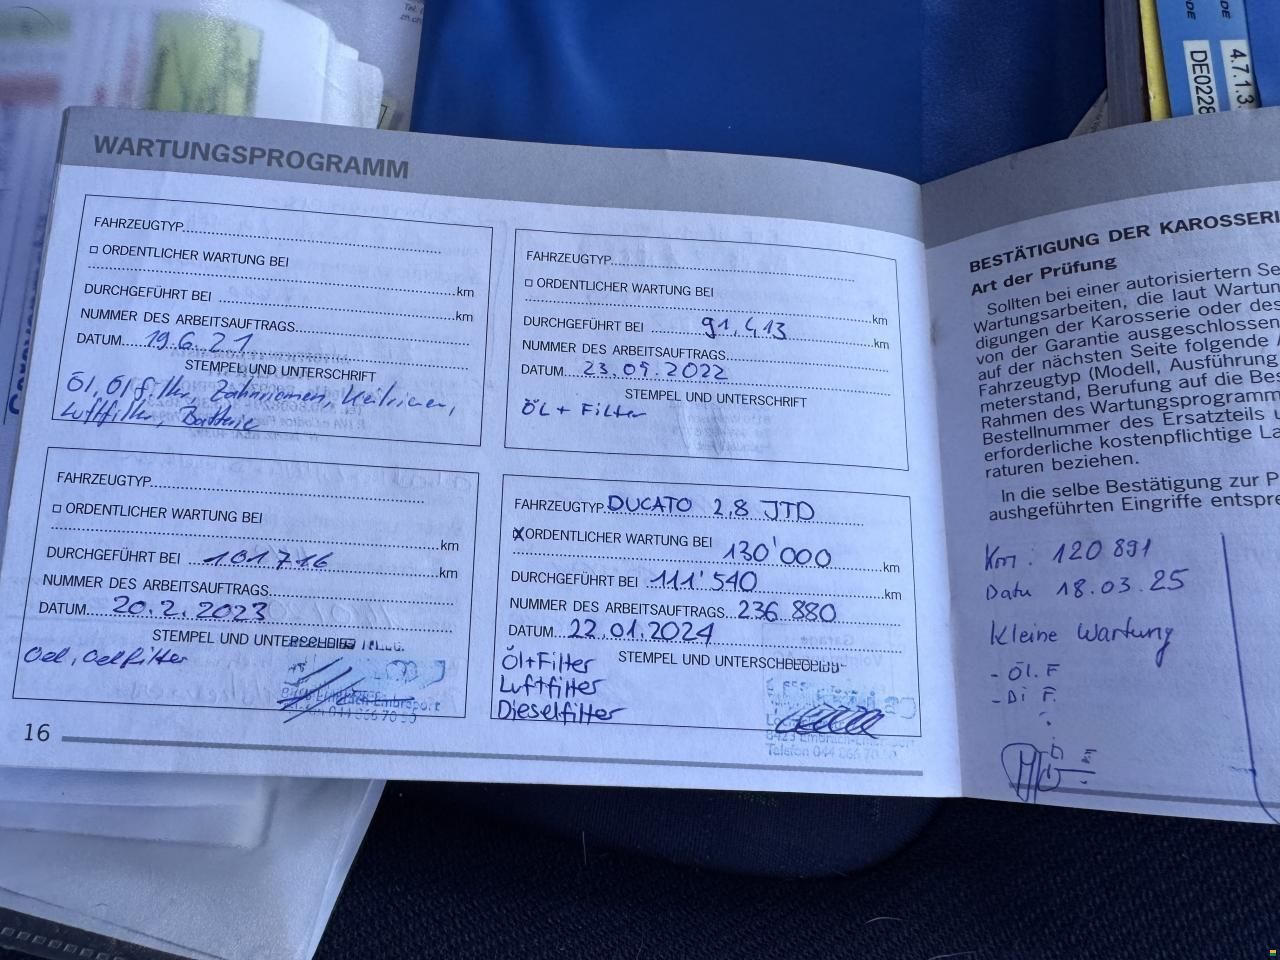 WARTUNGSPROGRAMM
FAHRZEUGTYP
ORDENTLICHER WARTUNG BEI
km
DURCHGEFÜHRT BEI km
NUMMER DES ARBEITSAUFTRAGS
DATUM 19.6.21
STEMPEL UND UNTERSCHRIFT
Öl, Ölfilter, Zahnriemen, Keilriemen,
Luftfilter, Batterie
FAHRZEUGTYP
ORDENTLICHER WARTUNG BEI
km
DURCHGEFÜHRT BEI 91.413 km
NUMMER DES ARBEITSAUFTRAGS
DATUM 23.09.2022
STEMPEL UND UNTERSCHRIFT
ÖL + Filter
FAHRZEUGTYP
ORDENTLICHER WARTUNG BEI
km
DURCHGEFÜHRT BEI 101.716 km
NUMMER DES ARBEITSAUFTRAGS
DATUM 20.2.2023
STEMPEL UND
Oel, Oelfilter
Embraport
FAHRZEUGTYP DUCATO 2,8 JTD
X ORDENTLICHER WARTUNG BEI
130'000 km
DURCHGEFÜHRT BEI 111'540 km
NUMMER DES ARBEITSAUFTRAGS 236 880
DATUM 22.01.2024
STEMPEL UND
Öl+Filter
Luftfilter
Dieselfilter
8423 Embrach
Telefon 044 866 70
16
BESTÄTIGUNG DER KAROSSERI
Art der Prüfung
Sollten bei einer autorisiertern Se
Wartungsarbeiten, die laut Wartun
digungen der Karosserie oder des
von der Garantie ausgeschlossen
auf der nächsten Seite folgende A
Fahrzeugtyp (Modell, Ausführung
meterstand, Berufung auf die Bes
Rahmen des Wartungsprogramm
Bestellnummer des Ersatzteils u
erforderliche kostenpflichtige La
raturen beziehen.
In die selbe Bestätigung zur P
aushgeführten Eingriffe entspre
Km: 120 891
Datu 18.03.25
Kleine Wartung
- Öl. F
- Di F.
DE0228
4.7.1.3
DE
DE